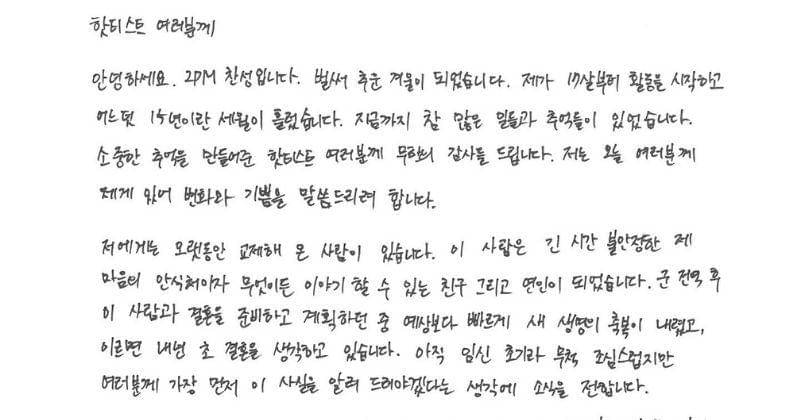 핫티스트 여러분께
안녕하세요. 2PM 찬성입니다. 벌써 추운 겨울이 되었습니다. 제가 17살부터 활동을 시작하고
어느덧 15년이란 세월이 흘렀습니다. 지금까지 참 많은 일들과 추억들이 있었습니다.
소중한 추억을 만들어준 핫티스트 여러분께 무한의 감사를 드립니다. 저는 오늘 여러분께
제게 있어 변화와 기쁨을 말씀드리려 합니다.
저에게는 오랫동안 교제해 온 사람이 있습니다. 이 사람은 긴 시간 불안정한 제
마음의 안식처이자 무엇이든 이야기 할 수 있는 친구 그리고 연인이 되었습니다. 군 전역 후
이 사람과 결혼을 준비하고 계획하던 중 예상보다 빠르게 새 생명의 축복이 내렸고,
이르면 내년 초 결혼을 생각하고 있습니다. 아직 임신 초기라 무척 조심스럽지만
여러분께 가장 먼저 이 사실을 알려 드려야겠다는 생각에 소식을 전합니다.